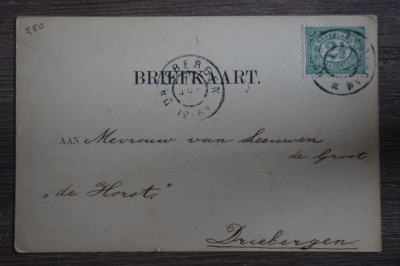 3,50
NEDERLAND
2½
DRIEBERGEN
BRIEFKAART.
AAN Mevrouw van Leeuwen
de Groot.
„de Horst"
Driebergen.